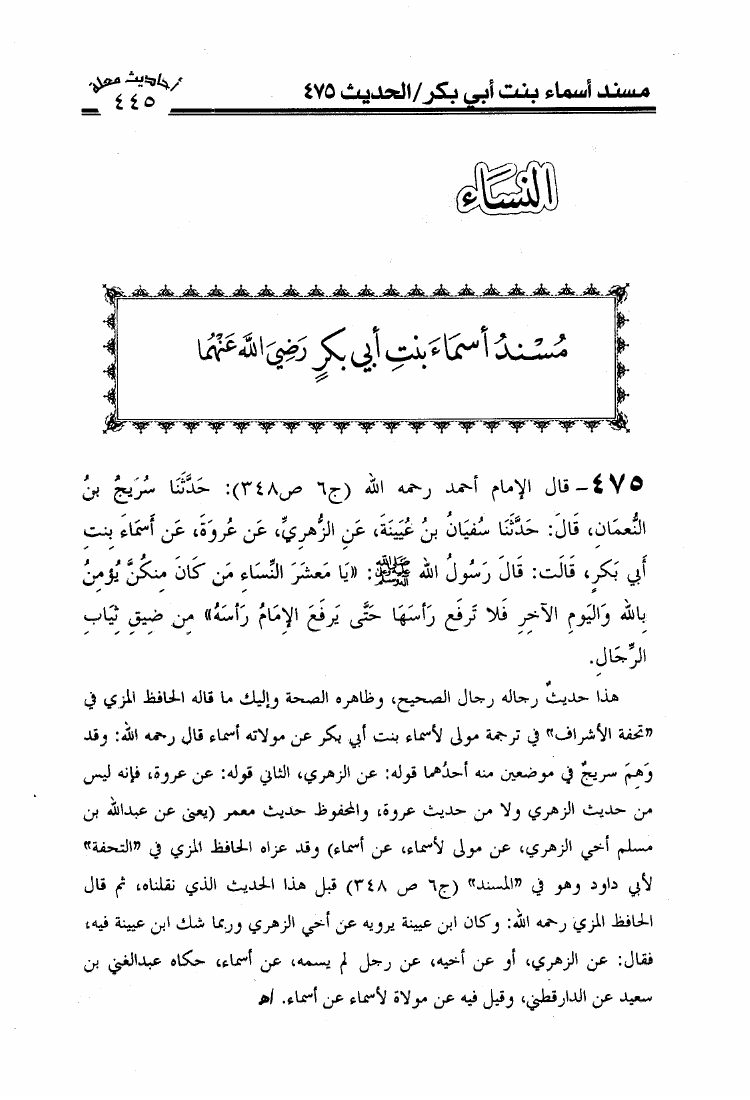 مسند أسماء بنت أبي بكر/الحديث ٤٧٥
أحاديث معلة
٤٤٥
النساء
مُسْنَدُ أَسْمَاءَ بِنْتِ أَبِي بَكْرٍ رَضِيَ اللَّهُ عَنْهُمَا
٤٧٥- قال الإمام أحمد رحمه الله (ج٦ ص٣٤٨): حَدَّثَنَا سُرَيجُ بنُ
النُّعمَانِ، قَالَ: حَدَّثَنَا سُفيَانُ بنُ عُيَينَةَ، عَنِ الزُّهرِيِّ، عَن عُروَةَ، عَن أَسمَاءَ بِنتِ
أَبِي بَكرٍ، قَالَت: قَالَ رَسُولُ الله ﷺ: «يَا مَعشَرَ النِّسَاءِ مَن كَانَ مِنكُنَّ يُؤمِنُ
بِالله وَاليَومِ الآخِرِ فَلَا تَرفَع رَأسَهَا حَتَّى يَرفَعَ الإِمَامُ رَأسَهُ» مِن ضِيقِ ثِيَابِ
الرِّجَالِ.
هذا حديثٌ رجاله رجال الصحيح، وظاهره الصحة وإليك ما قاله الحافظ المزي في
«تحفة الأشراف» في ترجمة مولى لأسماء بنت أبي بكر عن مولاته أسماء قال رحمه الله: وقد
وَهِمَ سريجٌ في موضعين منه أحدُهما قوله: عن الزهري، الثاني قوله: عن عروة، فإنه ليس
من حديث الزهري ولا من حديث عروة، والمحفوظ حديث معمر (يعني عن عبدالله بن
مسلم أخي الزهري، عن مولى لأسماء، عن أسماء) وقد عزاه الحافظ المزي في «التحفة»
لأبي داود وهو في «المسند» (ج٦ ص ٣٤٨) قبل هذا الحديث الذي نقلناه، ثم قال
الحافظ المزي رحمه الله: وكان ابن عيينة يرويه عن أخي الزهري وربما شك ابن عيينة فيه،
فقال: عن الزهري، أو عن أخيه، عن رجل لم يسمه، عن أسماء، حكاه عبدالغني بن
سعيد عن الدارقطني، وقيل فيه عن مولاة لأسماء عن أسماء. اهـ